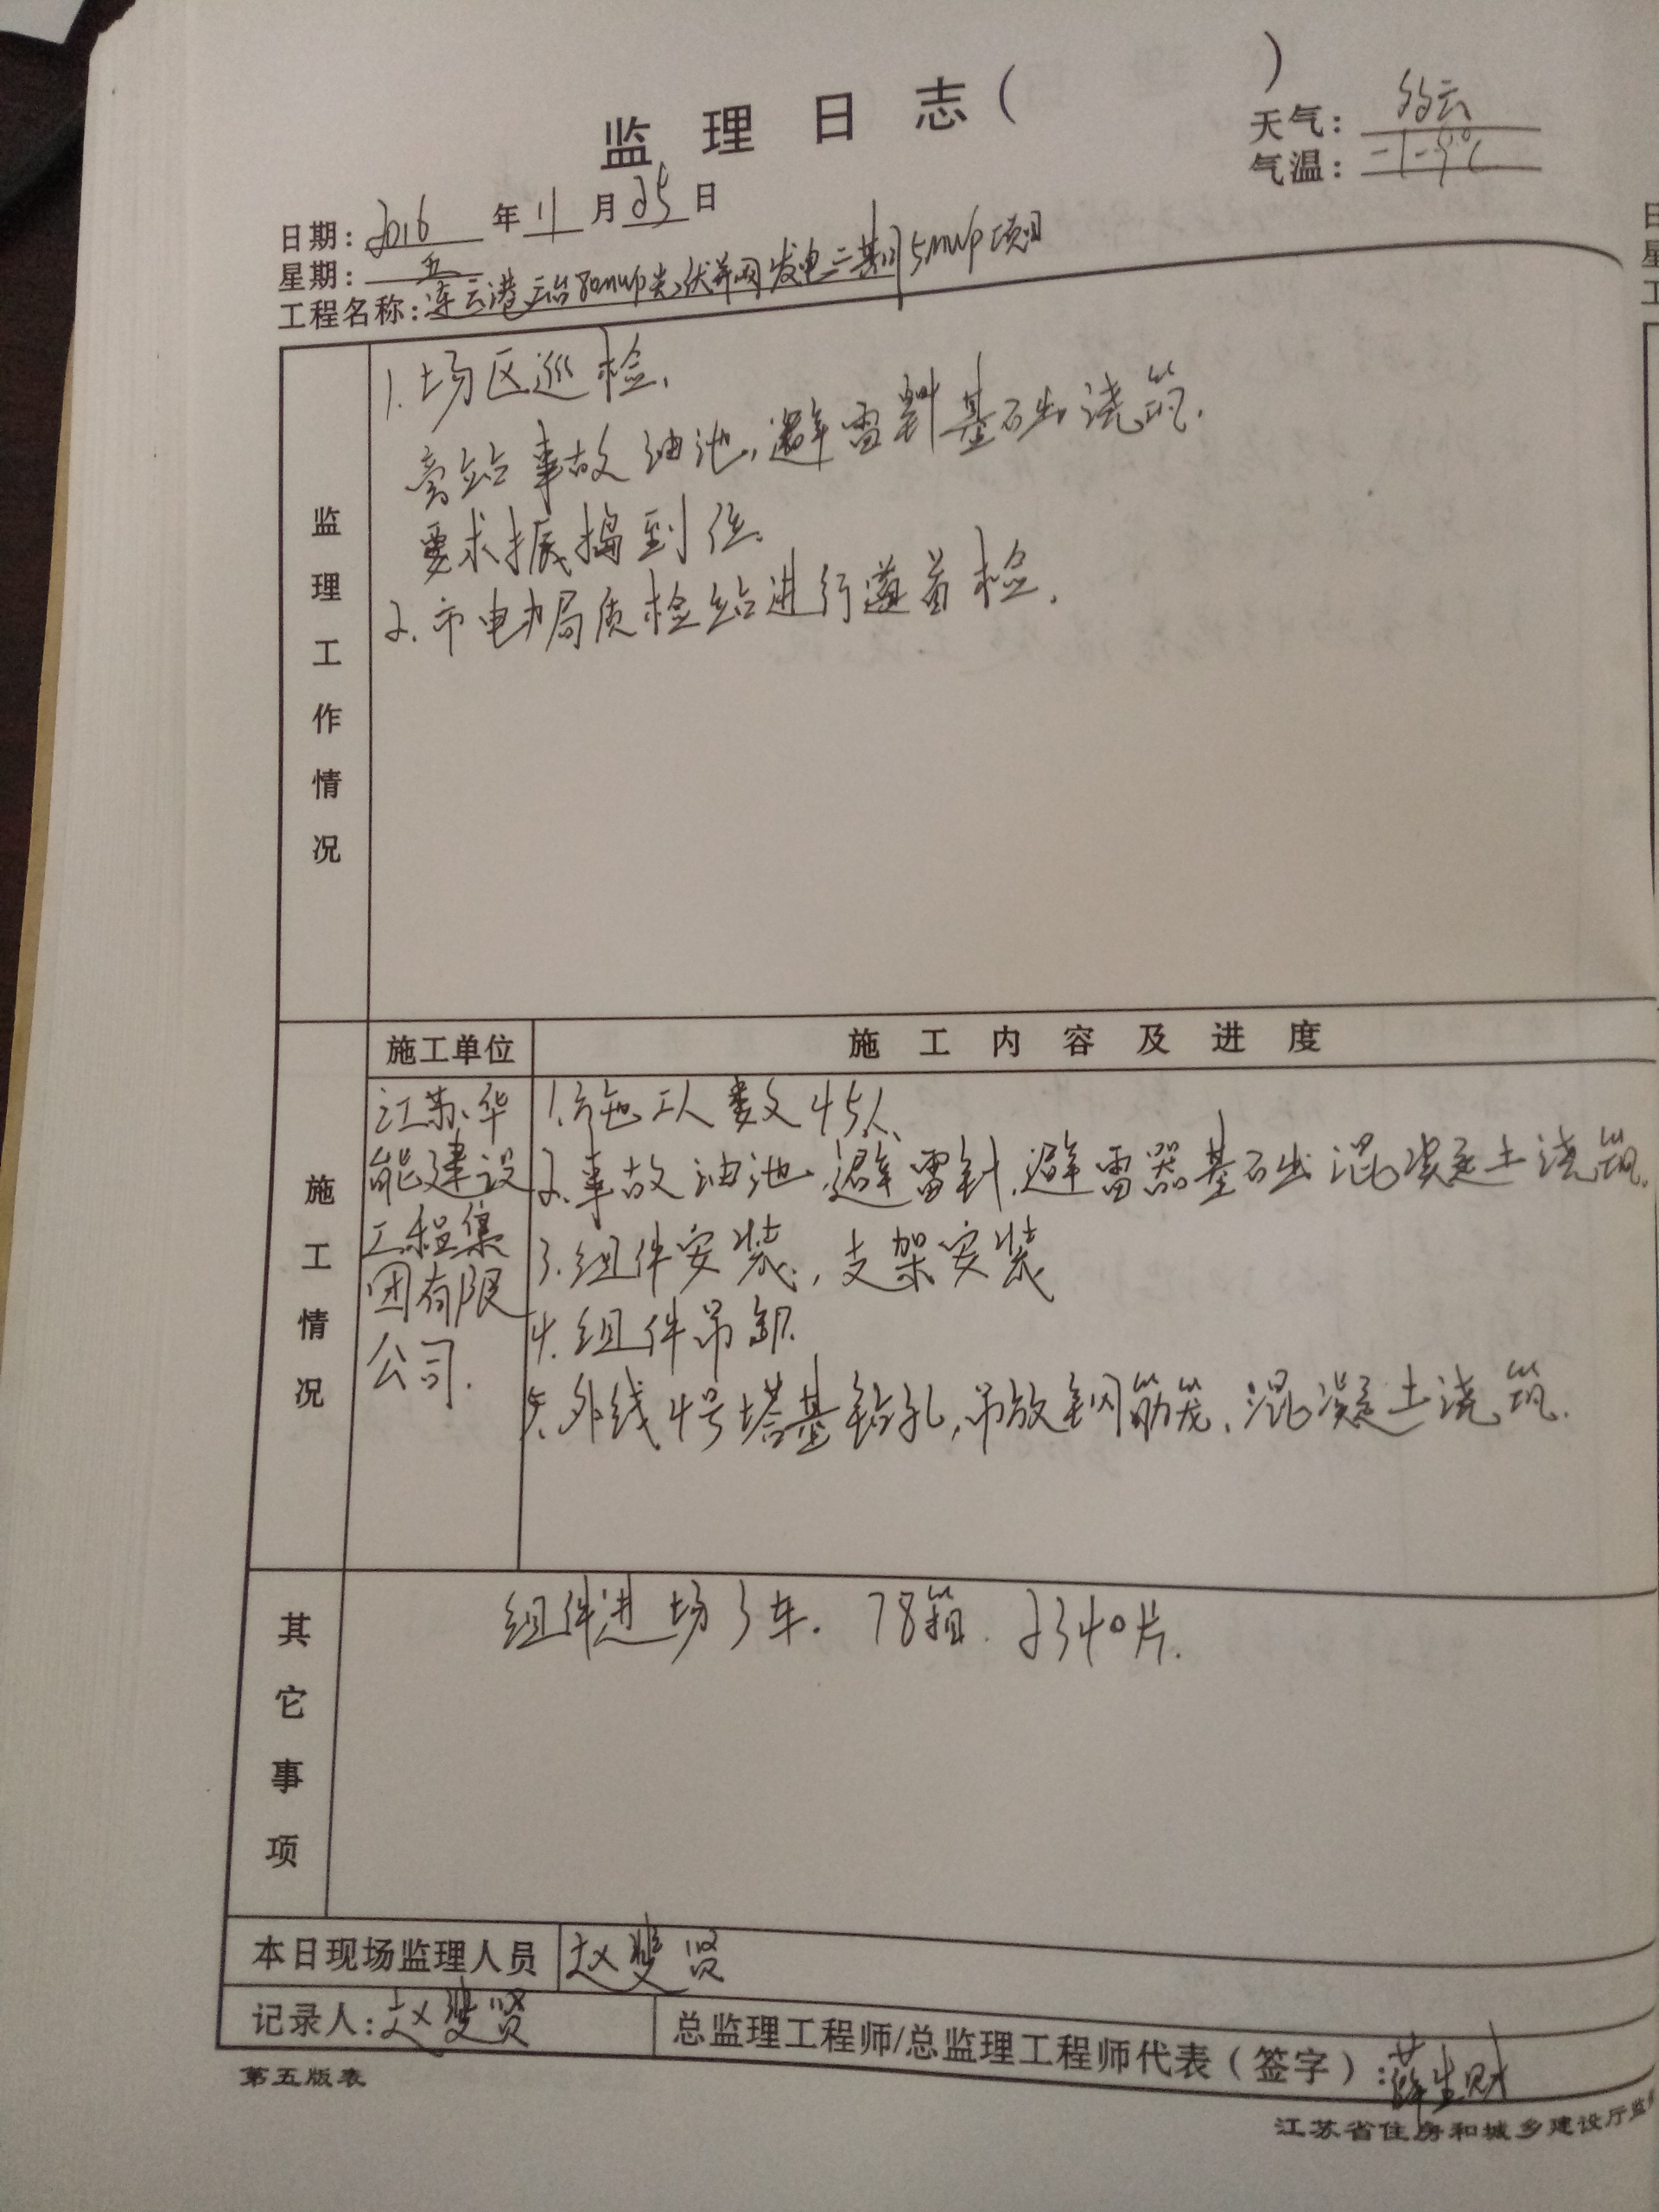 监理日志（ ）
天气：多云
气温：-1-9℃
日期：2016年11月25日
星期：五
工程名称：连云港云台80mwp光伏并网发电二期35mwp项目
监理工作情况
1.场区巡检、
旁站事故油池，避雷针基础浇筑.
要求振捣到位.
2.市电力局质检站进行首检.
施工情况
施工单位
施工内容及进度
江苏华
能建设
工程集
团有限
公司.
1.施工人数45人、
2.事故油池，避雷针，避雷器基础混凝土浇筑.
3.组件安装，支架安装
4.组件吊卸.
5.外线4号塔基钻孔，吊放钢筋笼，混凝土浇筑.
其它事项
组件进场3车. 78箱. 2340片.
本日现场监理人员 赵斐贤
记录人：赵斐贤
总监理工程师/总监理工程师代表（签字）：薛生财
第五版表
江苏省住房和城乡建设厅监